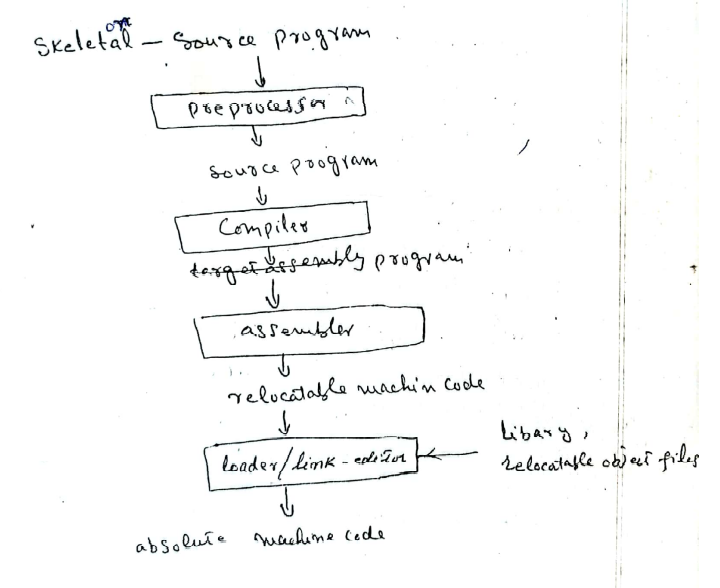 Skeletal — Source program
preprocessor
source program
Compiler
target assembly program
assembler
relocatable machin code
loader/link-editor
Libary,
relocatable object files
absolute machine code